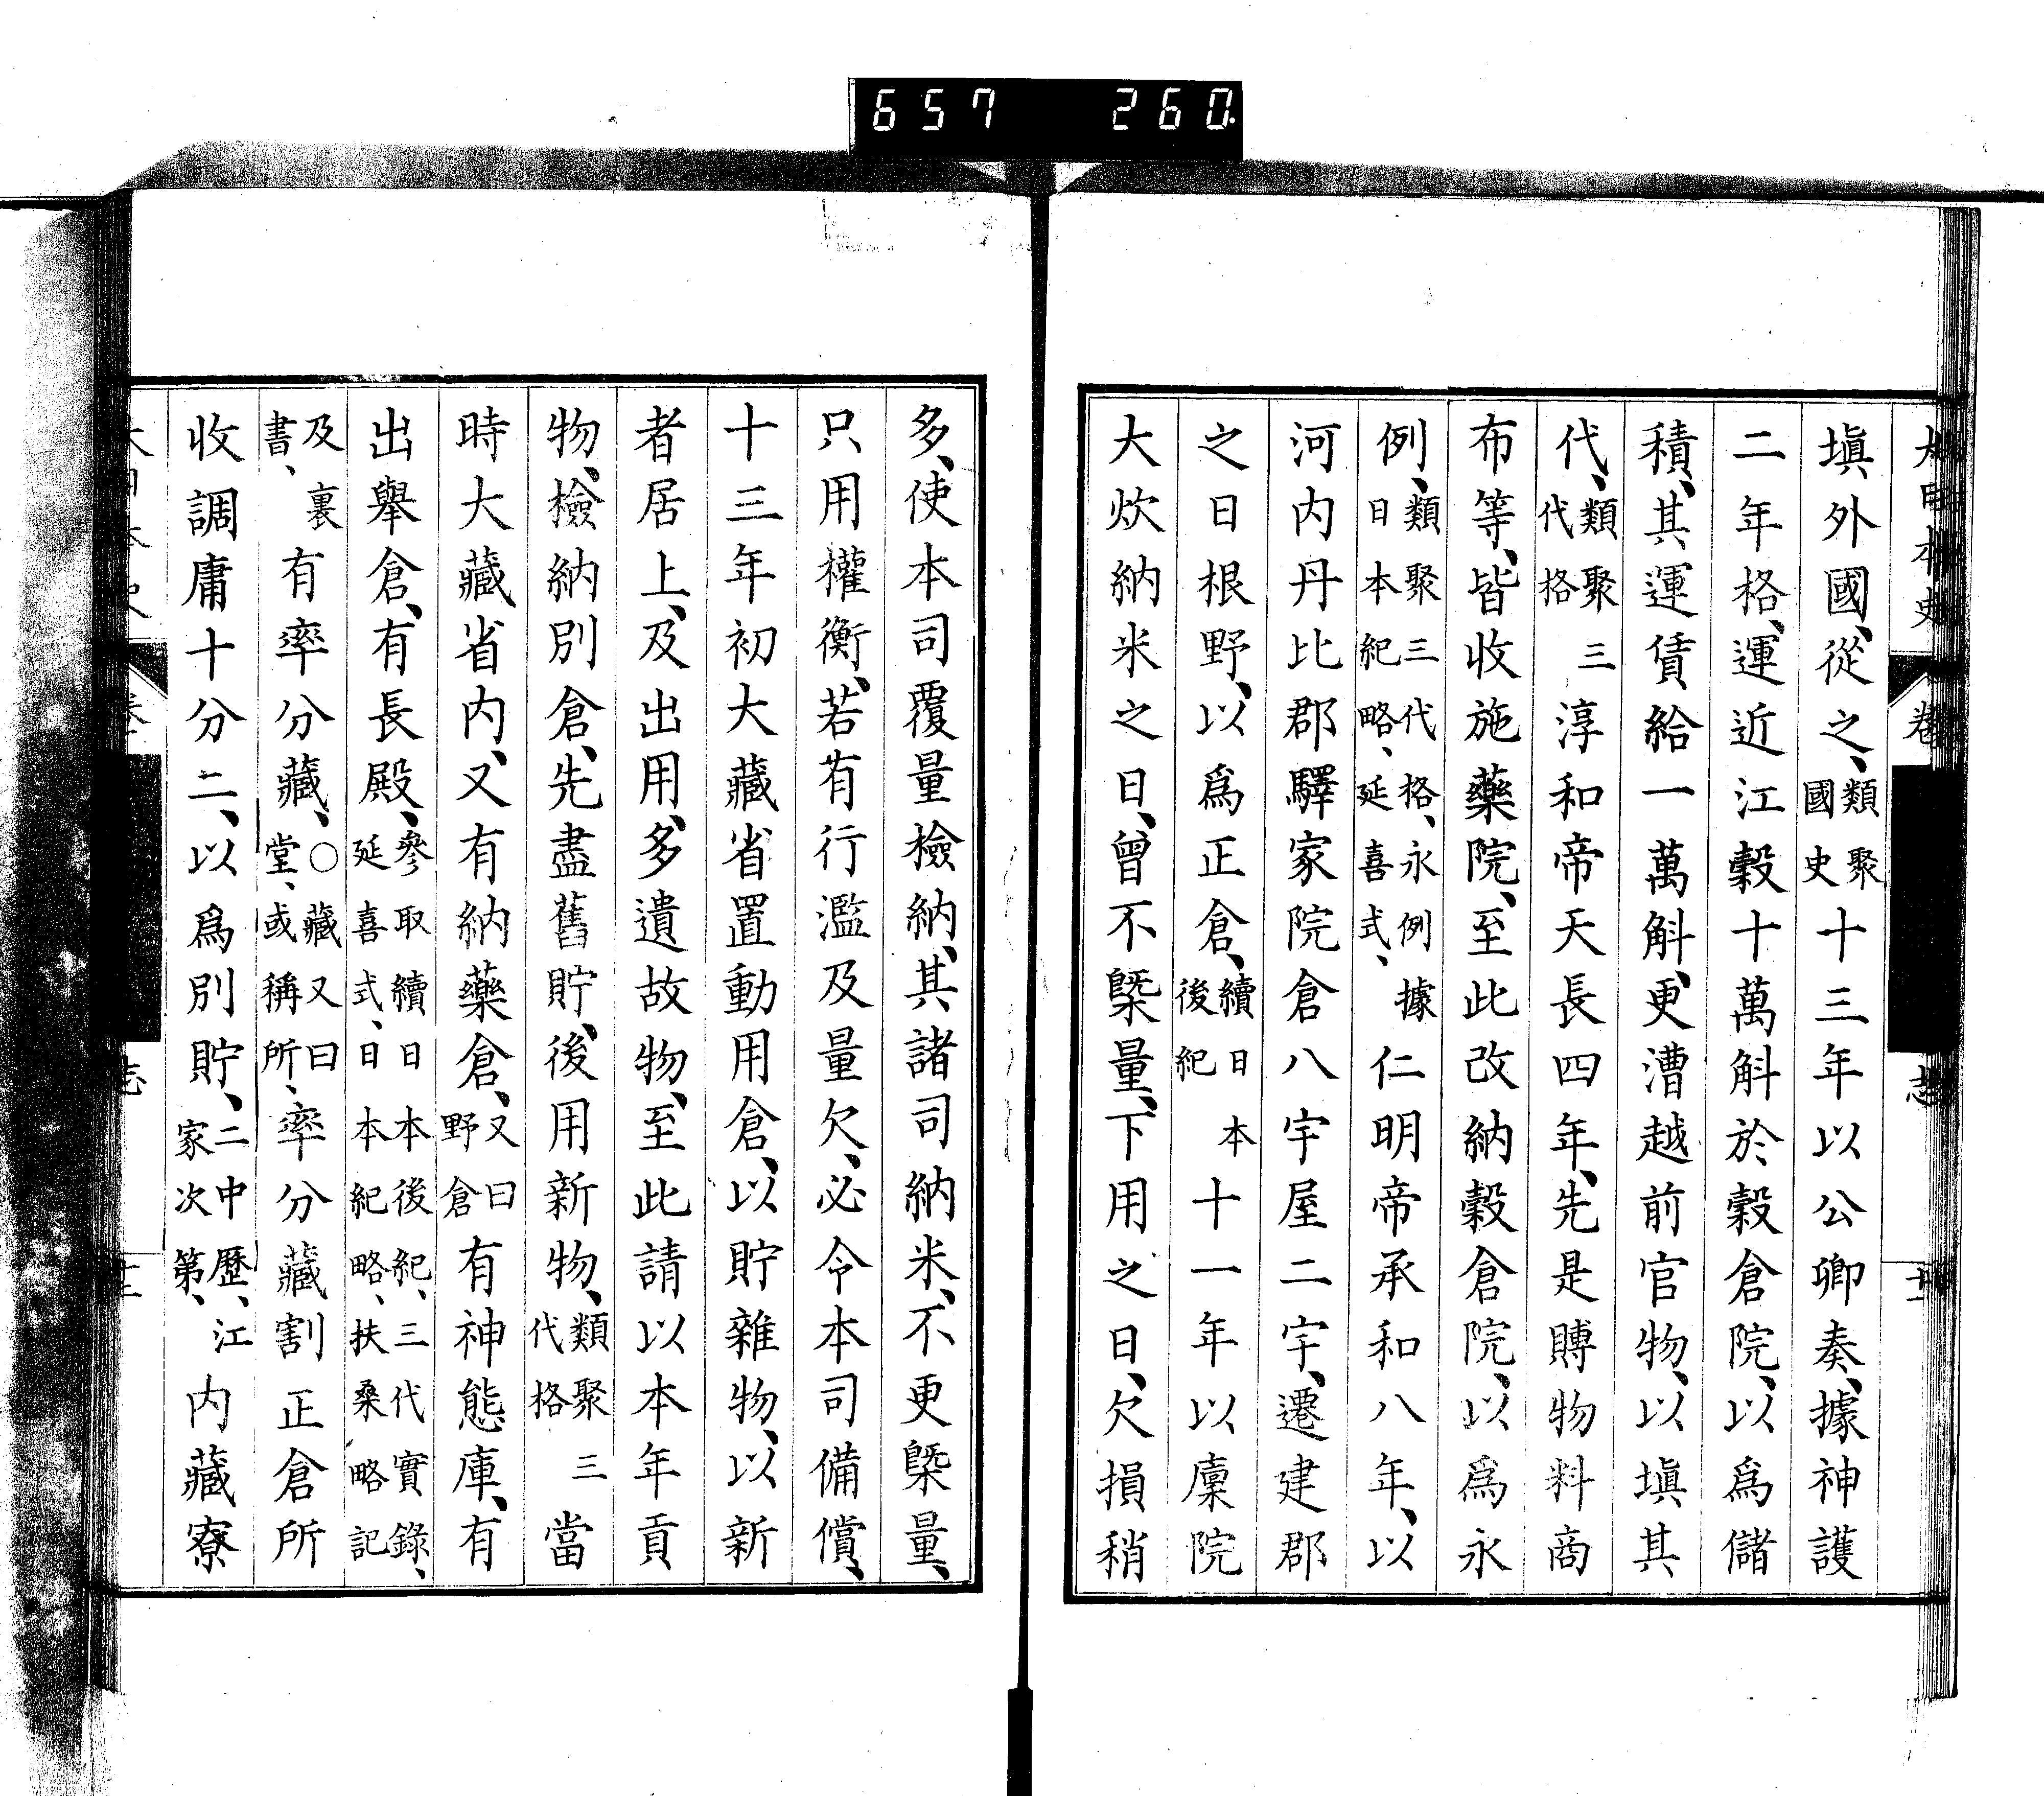 657 260
大日本史 卷 志
塡、外國、從之、類聚國史十三年以公卿奏、據神護
二年格、運近江穀十萬斛於穀倉院、以爲儲
積、其運賃給一萬斛、更漕越前官物、以塡其
代、類聚三代格淳和帝天長四年、先是賻物料商
布等、皆收施藥院、至此改納穀倉院、以爲永
例、類聚三代格、永例據日本紀略、延喜式、仁明帝承和八年、以
河内丹比郡驛家院倉八宇屋二宇、遷建郡
之日根野、以爲正倉、續日本後紀十一年以廩院
大炊納米之日、曾不槩量、下用之日、欠損稍
多、使本司覆量檢納、其諸司納米、不更槩量、
只用權衡、若有行濫及量欠、必令本司備償、
十三年初大藏省置動用倉、以貯雜物、以新
者居上、及出用、多遺故物、至此請以本年貢
物、檢納別倉、先盡舊貯、後用新物、類聚三代格當
時大藏省内、又有納藥倉、又曰野倉有神態庫、有
出舉倉、有長殿、參取續日本後紀、三代實錄、延喜式、日本紀略、扶桑略記
及裏書、有率分藏、○藏又曰堂、或稱所、率分藏割正倉所
收調庸十分二、以爲別貯、二中歷、江家次第、内藏寮